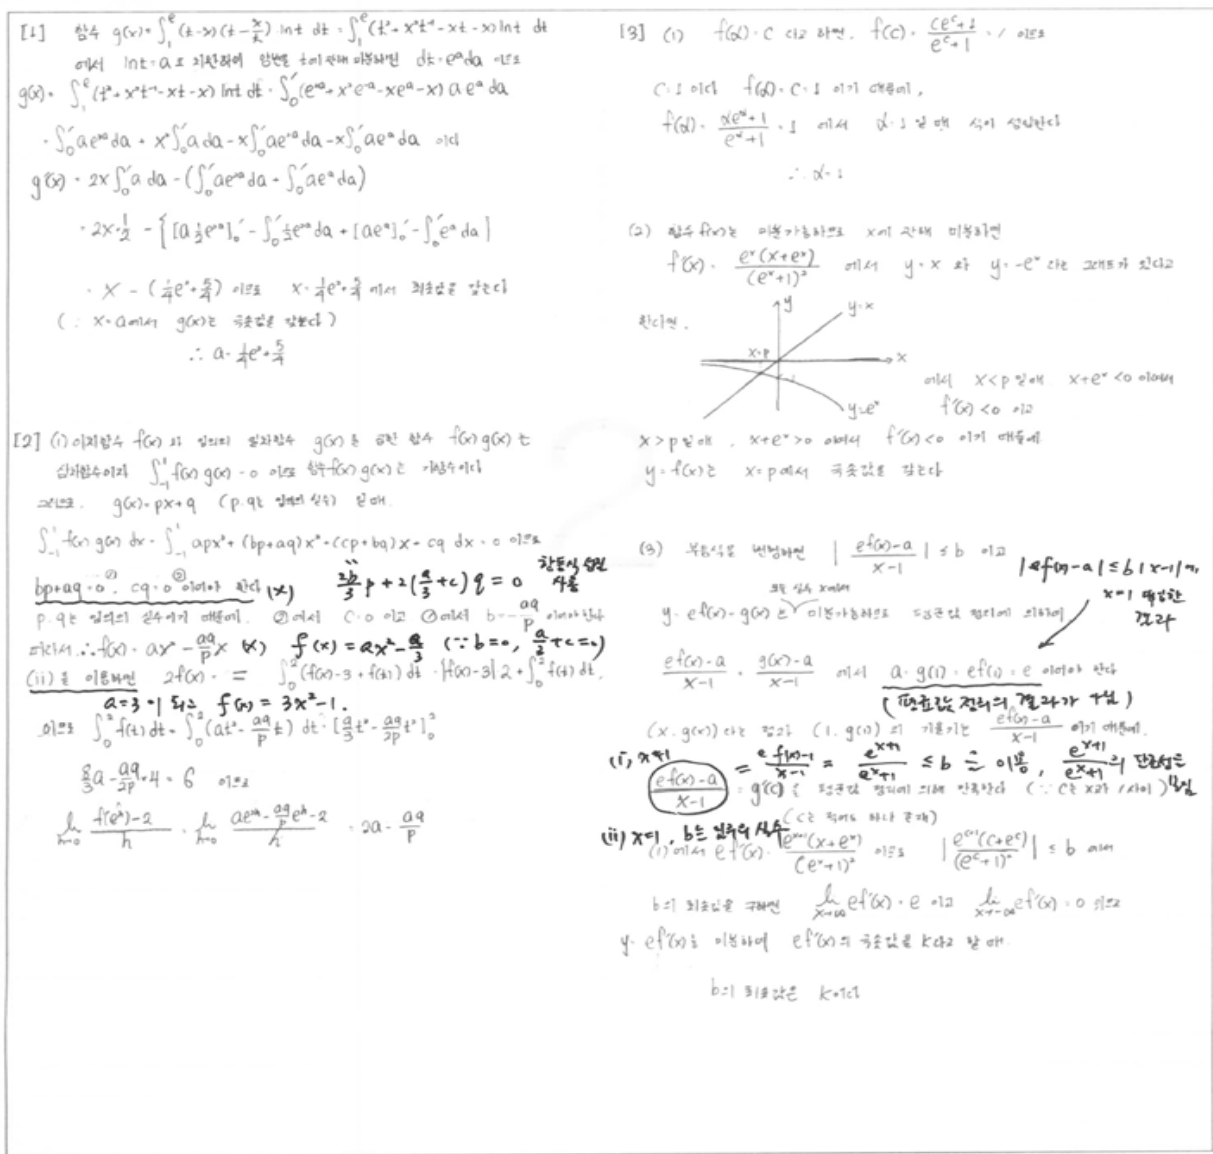 [1] 함수 g(x)=∫₁ᵉ(t-x)(t-x/t) lnt dt = ∫₁ᵉ(t²+x²t⁻¹-xt-x)lnt dt
에서 lnt=a로 치환하여 양변을 t에 관해 미분하면 dt=eᵃda 이므로
g(x)= ∫₁ᵉ(t²+x²t⁻¹-xt-x) lnt dt = ∫₀¹(e²ᵃ+x²e⁻ᵃ-xeᵃ-x) a eᵃ da
= ∫₀¹ae³ᵃda + x²∫₀¹a da - x∫₀¹ae²ᵃda - x∫₀¹aeᵃda 이다
g'(x) = 2x∫₀¹a da - (∫₀¹ae²ᵃda + ∫₀¹aeᵃda)
= 2x·1/2 - {[a 1/2 e²ᵃ]₀¹ - ∫₀¹ 1/2 e²ᵃ da + [aeᵃ]₀¹ - ∫₀¹eᵃ da}
= x - (1/4 e² + 5/4) 이므로 x=1/4 e²+5/4 에서 최솟값을 갖는다
(∵ x=a에서 g(x)는 극솟값을 갖는다)
∴ a=1/4 e²+5/4
[2] (i) 이차함수 f(x) 와 임의의 일차함수 g(x) 를 곱한 함수 f(x)g(x) 는
삼차함수이고 ∫₋₁¹ f(x)g(x)=0 이므로 함수f(x)g(x)는 기함수이다
그러므로, g(x)=px+q (p, q는 임의의 실수) 일 때.
∫₋₁¹ f(x)g(x) dx = ∫₋₁¹ apx³+(bp+aq)x²+(cp+bq)x+cq dx = 0 이므로
bp+aq=0, ① cq=0 ② 이어야 한다 (×) 2b/3 p + 2(a/3+c) q = 0 항등식 성질 사용
p, q는 임의의 실수이기 때문에. ②에서 c=0 이고 ①에서 b=-aq/p 이어야 한다
따라서 ∴ f(x)= ax²-aq/p x (×) f(x)=ax²-a/3 (∵ b=0, a/3+c=0)
(ii) 를 이용하면 2f(x)= = ∫₀²(f(x)-3+f(t)) dt = |f(x)-3|·2+∫₀²f(t) dt.
a=3이 되고 f(x)=3x²-1.
이므로 ∫₀²f(t)dt = ∫₀²(at²-aq/p t) dt = [a/3 t³-aq/2p t²]₀²
8/3 a - aq/2p ·4 = 6 이므로
lim h→0 f(eʰ)-2/h = lim h→0 ae²ʰ-aq/p eʰ-2/h = 2a-aq/p
[3] (1) f(α)=c 라고 하면, f(c)=ceᶜ+1/eᶜ+1 = 1 이므로
c=1 이다 f(α)=c=1 이기 때문에,
f(α)=αeᵅ+1/eᵅ+1 =1 에서 α=1 일 때 식이 성립한다
∴ α=1
(2) 함수 f(x)는 미분가능하므로 x에 관해 미분하면
f'(x)= eˣ(x+eˣ)/(eˣ+1)² 에서 y=x 와 y=-eˣ 라는 그래프가 있다고
한다면,
y
y=x
x=p
x
-1
y=-eˣ
에서 x<p 일 때 x+eˣ<0 이어서
f'(x)<0 이고
x>p일 때, x+eˣ>0 이어서 f'(x)<0 이기 때문에
y=f(x)는 x=p에서 극솟값을 갖는다
(3) 부등식을 변형하면 | ef(x)-a/x-1 | ≤ b 이고
|ef(x)-a|≤b|x-1|에 x=1 대입한 결과
모든 실수 x에서
y=ef(x)=g(x)는 미분가능하므로 평균값 정리에 의하여
ef(x)-a/x-1 = g(x)-a/x-1 에서 a=g(1)=ef(1)=e 이어야 한다
(평균값 정리의 결과가 아님)
(x, g(x)) 라는 점과 (1, g(1)) 의 기울기는 ef(x)-a/x-1 이기 때문에.
(i) x≠1 ef(x)-a/x-1 = e f(x)-1/x-1 = eˣ⁺¹/eˣ+1 ≤ b 를 이용, eˣ⁺¹/eˣ+1의 단조성을 보임
= g'(c) 를 평균값 정리에 의해 만족한다 (∵ c는 x와 1사이)
(c는 적어도 하나 존재)
(ii) x=1, b는 임의의 실수
(1)에서 ef'(x)= eˣ⁺¹(x+eˣ)/(eˣ+1)² 이므로 | eᶜ⁺¹(c+eᶜ)/(eᶜ+1)² | ≤ b 이며
b의 최솟값을 구하면 lim x→∞ ef'(x)=e 이고 lim x→-∞ ef'(x)=0 이므로
y=ef'(x)를 미분하여 ef'(x)의 극솟값을 k라고 할 때.
b의 최솟값은 k이다